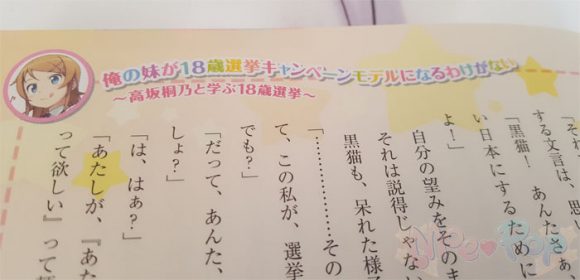 俺の妹が18歳選挙キャンペーンモデルになるわけがない
～高坂桐乃と学ぶ18歳選挙～
する文言は、思い
あんたさぁ、
「黒猫！
い日本にするために
よ！」
自分の望みをその
それは説得じゃな
黒猫も、呆れた様
「………………その
て、この私が、選挙
でも？」
「だって、あんた、
しょ？」
「は、はぁ？」
「あたしが、『あた
って欲しい』って